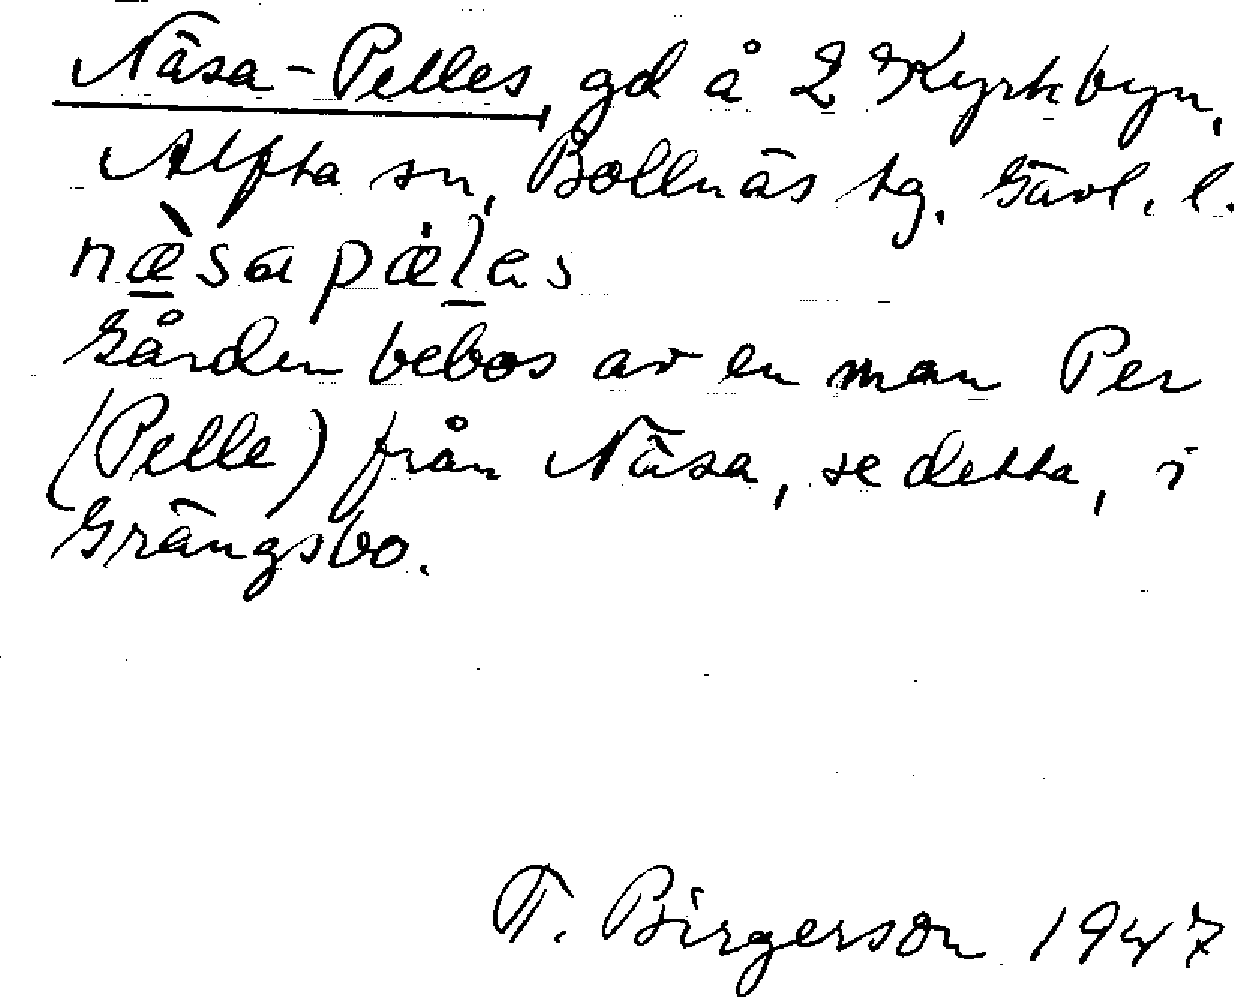 Näsa-Pelles, gd å 2 Kyrkbyn,
Alfta sn, Bollnäs tg. Gävl. l.
næ̀sapæ̇las
Gården bebos av en man Per
(Pelle) från Näsa, se detta, i
Grängsbo.
T. Birgerson 1947